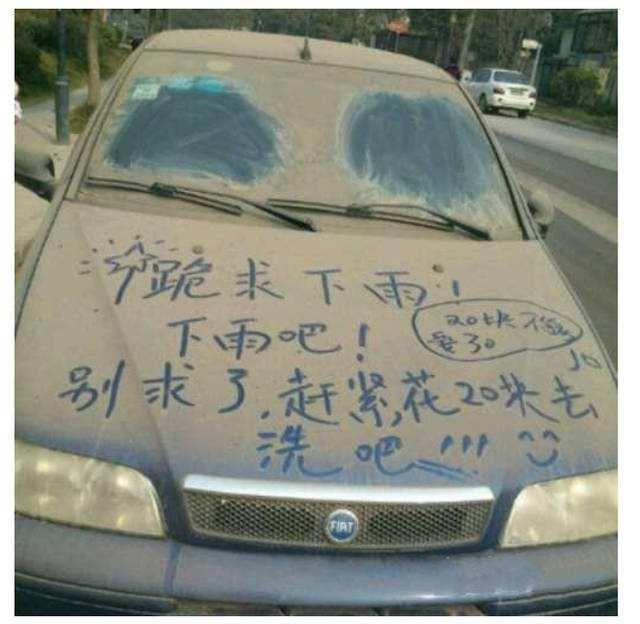 跪求下雨！
下雨吧！
20块不够
要30
别求了，赶紧花20块去
洗吧!!!
FIAT